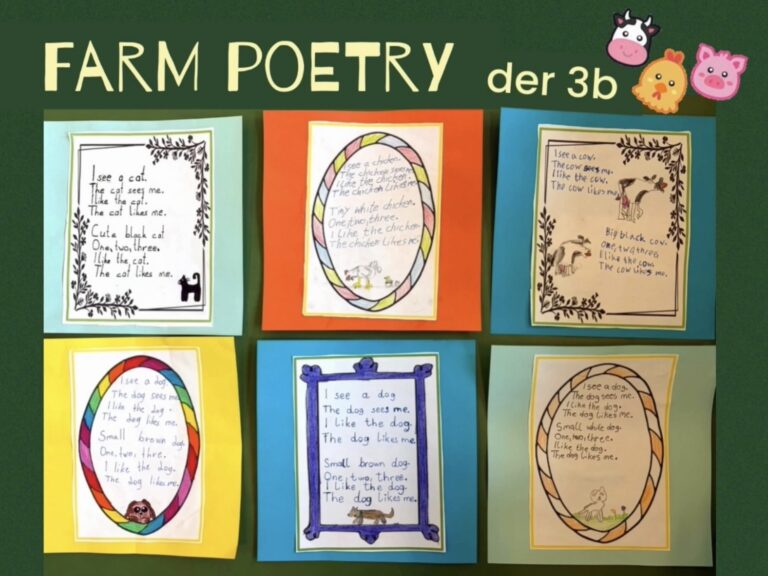 FARM POETRY der 3b
I see a cat.
The cat sees me.
I like the cat.
The cat likes me.
Cute black cat
One, two, three.
I like the cat.
The cat likes me.
I see a chicken.
The chicken sees me.
I like the chicken.
The chicken likes me.
Tiny white chicken.
One, two, three.
I like the chicken.
The chicken likes me.
I see a cow.
The cow sees me.
I like the cow.
The cow likes me.
Big black cow.
One, two, three
I like the cow.
The cow likes me.
I see a dog.
The dog sees me.
I like the dog.
The dog likes me.
Small brown dog.
One, two, three.
I like the dog.
The dog likes me.
I see a dog
The dog sees me.
I like the dog.
The dog likes me
Small brown dog.
One two, three.
I like the dog.
The dog likes me.
I see a dog.
The dog sees me.
I like the dog.
The dog likes me.
Small while dog.
One, two, three.
I like the dog.
The dog likes me.